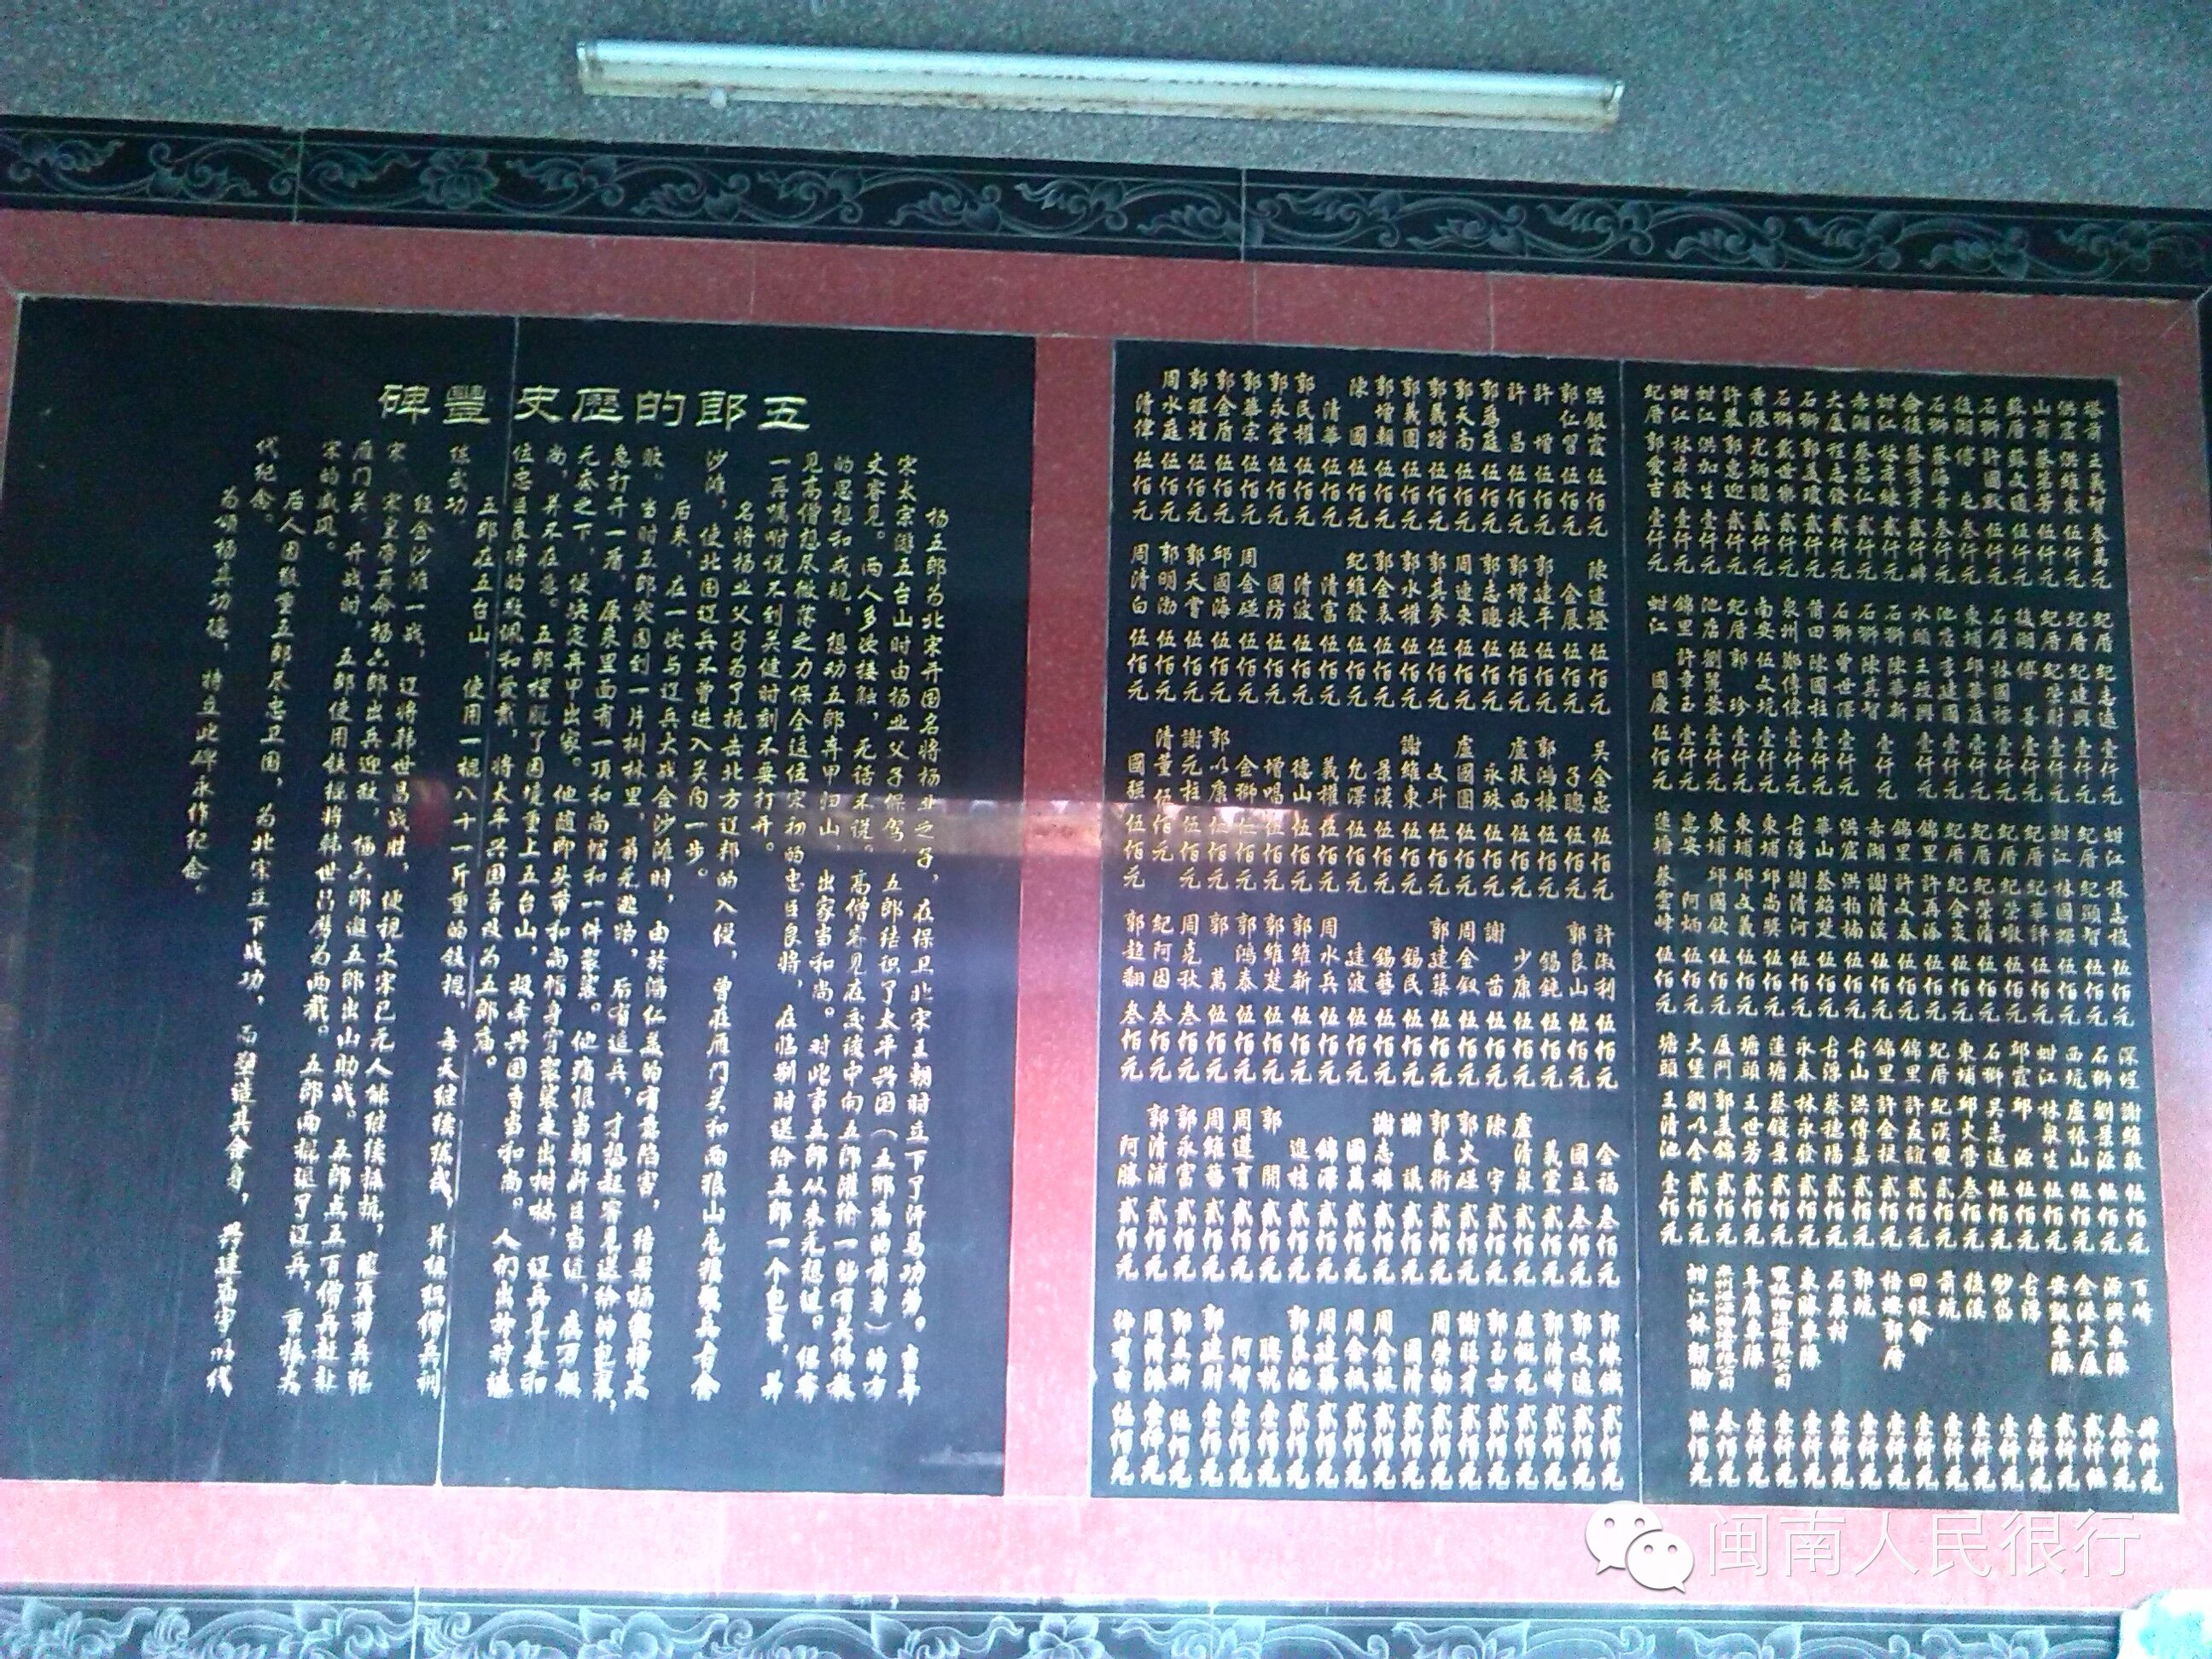 五郎的歷史豐碑
杨五郎为北宋开国名将杨业之子，在保卫北宋王朝时立下了汗马功劳。当年
宋太宗游五台山时由杨业父子保驾，五郎结识了太平兴国（五郎庙的前身）的方
丈睿见。两人多次接触，无话不说。高僧睿见在交谈中向五郎灌输一些有关佛教
的思想和戒规，想劝五郎弃甲归山，出家当和尚。对此事五郎从来无想过。但睿
见高僧想尽微薄之力保全这位宋初的忠臣良将，在临别时送给五郎一个包裹，并
一再嘱咐说不到关键时刻不要打开。
名将杨业父子为了抗击北方辽邦的入侵，曾在雁门关和两狼山屯狼牙兵
沙滩，使北国辽兵不曾进入关内一步。
后来，在一次与辽兵大战金沙滩时，由於潘仁美的有意陷害，结果杨家杨大
败。当时五郎突围到一片树林里，前无逃路，后有追兵，才想起睿见送给的包裹，
急打开一看，原来里面有一顶和尚帽和一件袈裟。他痛恨当朝奸臣当道，在万般
无奈之下，便决定弃甲出家。他随即头带和尚帽身穿袈裟走出树林，辽兵见是和
尚，并不在意。五郎摆脱了困境重上五台山，投奔兴国寺当和尚。人们出於对这
位忠臣良将的敬佩和爱戴，将太平兴国寺改为五郎庙。
五郎在五台山，使用一棍八十一斤重的铁棍，每天继续练武，并组织僧兵训
练武功。
经金沙滩一战，辽将韩世昌战胜，便视大宋已无人能继续抵抗，随再带兵犯
宋。宋皇帝再命杨六郎出兵迎敌，杨六郎邀五郎出山助战。五郎点五百僧兵赶赴
雁门关，开战时，五郎使用铁棍将韩世昌劈为两截。五郎两棍退了辽兵，重振大
宋的威风。
后人因敬重五郎尽忠卫国，为北宋立下战功，而塑造其金身，兴建庙宇以代
代纪念。
为颂杨兵功德，特立此碑永作纪念。
塔前 王義智 叁萬元
洪窟 洪維東 伍仟元
山前 蔡萬芳 伍仟元
蘇厝 蘇文通 伍仟元
石獅 許國默 伍仟元
石獅 蔡海音 叁仟元
赤湖 蔡忠仁 貳仟元
大廈 程志發 貳仟元
石獅 郭美瓊 貳仟元
石獅 戴世樂 貳仟元
香港 尤炳聰 貳仟元
許墓 郭惠迎 壹仟元
蚶江 洪加生 壹仟元
蚶江 林凉發 壹仟元
紀厝 郭愛吉 壹仟元
紀厝 紀志遠 壹仟元
紀厝 紀建興 壹仟元
紀厝 紀榮財 壹仟元
後湖 傅善 壹仟元
石壁 林國標 壹仟元
東埔 邱華庭 壹仟元
池店 李建國 壹仟元
水頭 王經興 壹仟元
石獅 陳華新 壹仟元
石獅 陳其智
石獅 曾世澤 壹仟元
莆田 陳國柱 壹仟元
泉州 鄭傳偉 壹仟元
南安 伍文坑 壹仟元
紀厝 郭珍 壹仟元
池店 劉麗蓉 壹仟元
錦里 許章玉 壹仟元
蚶江 國慶 伍佰元
蚶江 林志枝 伍佰元
紀厝 紀顯智 伍佰元
蚶江 林國輝 伍佰元
紀厝 紀華評 伍佰元
紀厝 紀榮墩 伍佰元
紀厝 紀榮清 伍佰元
紀厝 紀金炎 伍佰元
錦里 許再添 伍佰元
錦里 許文春 伍佰元
赤湖 謝清溪 伍佰元
洪窟 洪柏楠 伍佰元
華山 蔡紹楚 伍佰元
古浮 謝清河 伍佰元
東埔 邱尚獎 伍佰元
東埔 邱文義 伍佰元
東埔 邱國欽 伍佰元
惠安 阿炳 伍佰元
蓮塘 蔡雲峰 伍佰元
深埕 謝維敦 伍佰元
石獅 劉景源 伍佰元
西坑 盧振山 伍佰元
蚶江 林泉生 伍佰元
邱霞 邱源 伍佰元
石獅 吳志遠 伍佰元
東埔 邱火營 叁佰元
紀厝 紀漢雙 貳佰元
錦里 許友誼 貳佰元
錦里 許金提 貳佰元
古山 洪傳嘉 貳佰元
古浮 蔡穗陽 貳佰元
永春 林永發 貳佰元
蓮塘 蔡錢景 貳佰元
塘頭 王世芳 貳佰元
厦門 郭美錦 貳佰元
大堡 劉以全 貳佰元
塘頭 王清池 壹佰元
百峰 肆仟元
源興車隊 叁仟元
金滿大厦 貳仟伍
安凱車隊 貳仟元
古浮 壹仟元
砂岱 壹仟元
後溪 壹仟元
前坑 壹仟元
回恒會 壹仟元
梧塔郭厝 壹仟元
郭坑 壹仟元
石農村 壹仟元
東勝車隊 壹仟元
阜康車隊 壹仟元
蚶江林朝陽 伍佰元
洪銀霞 伍佰元
郭仁習 伍佰元
許增 伍佰元
許昌 伍佰元
郭為庭 伍佰元
郭天南 伍佰元
郭義階 伍佰元
郭義團 伍佰元
郭增朝 伍佰元
陳國 伍佰元
清華 伍佰元
郭民權 伍佰元
郭永堂 伍佰元
郭華宗 伍佰元
郭金盾 伍佰元
郭輝煌 伍佰元
周水庭 伍佰元
清偉 伍佰元
陳連燈 伍佰元
金展 伍佰元
郭建平 伍佰元
郭增扶 伍佰元
郭志聰 伍佰元
周連來 伍佰元
郭其參 伍佰元
郭水權 伍佰元
郭金表 伍佰元
紀維發 伍佰元
清富 伍佰元
清波 伍佰元
國防 伍佰元
周金碰 伍佰元
邱國海 伍佰元
郭天賞 伍佰元
郭明渤 伍佰元
周清白 伍佰元
吳金忠 伍佰元
子聰 伍佰元
郭鴻棟 伍佰元
盧扶西 伍佰元
永殊 伍佰元
盧國團 伍佰元
文斗 伍佰元
謝維東 伍佰元
景漢 伍佰元
允澤 伍佰元
義權 伍佰元
德山 伍佰元
增唱 伍佰元
金獅 伍佰元
郭以康 伍佰元
謝元柱 伍佰元
清董 伍佰元
國猛 伍佰元
許淑利 伍佰元
郭良山 伍佰元
錫鈍 伍佰元
少康 伍佰元
謝苗 伍佰元
周金釵 伍佰元
郭建築 伍佰元
錫民 伍佰元
錫藝 伍佰元
建波 伍佰元
周水兵 伍佰元
郭維新 伍佰元
郭維楚 伍佰元
郭鴻泰 伍佰元
郭萬 伍佰元
周克秋 叁佰元
紀阿因 叁佰元
郭超翻 叁佰元
金福 叁佰元
國立 叁佰元
義堂 貳佰元
盧清泉 貳佰元
陳宇 貳佰元
郭火碰 貳佰元
郭良術 貳佰元
謝議 貳佰元
謝志雄 貳佰元
國萬 貳佰元
錦澤 貳佰元
進桂 貳佰元
郭開 貳佰元
周遵育 貳佰元
周維藝 貳佰元
郭永富 貳佰元
郭清浦 貳佰元
阿勝 貳佰元
郭文遠 貳佰元
郭清峰 貳佰元
郭玉士 貳佰元
謝旺才 貳佰元
周榮勤 貳佰元
國清 貳佰元
周建築 貳佰元
郭良池 貳佰元
阿智 壹佰元
郭建財 壹佰元
郭直新 伍佰元
闽南人民很行